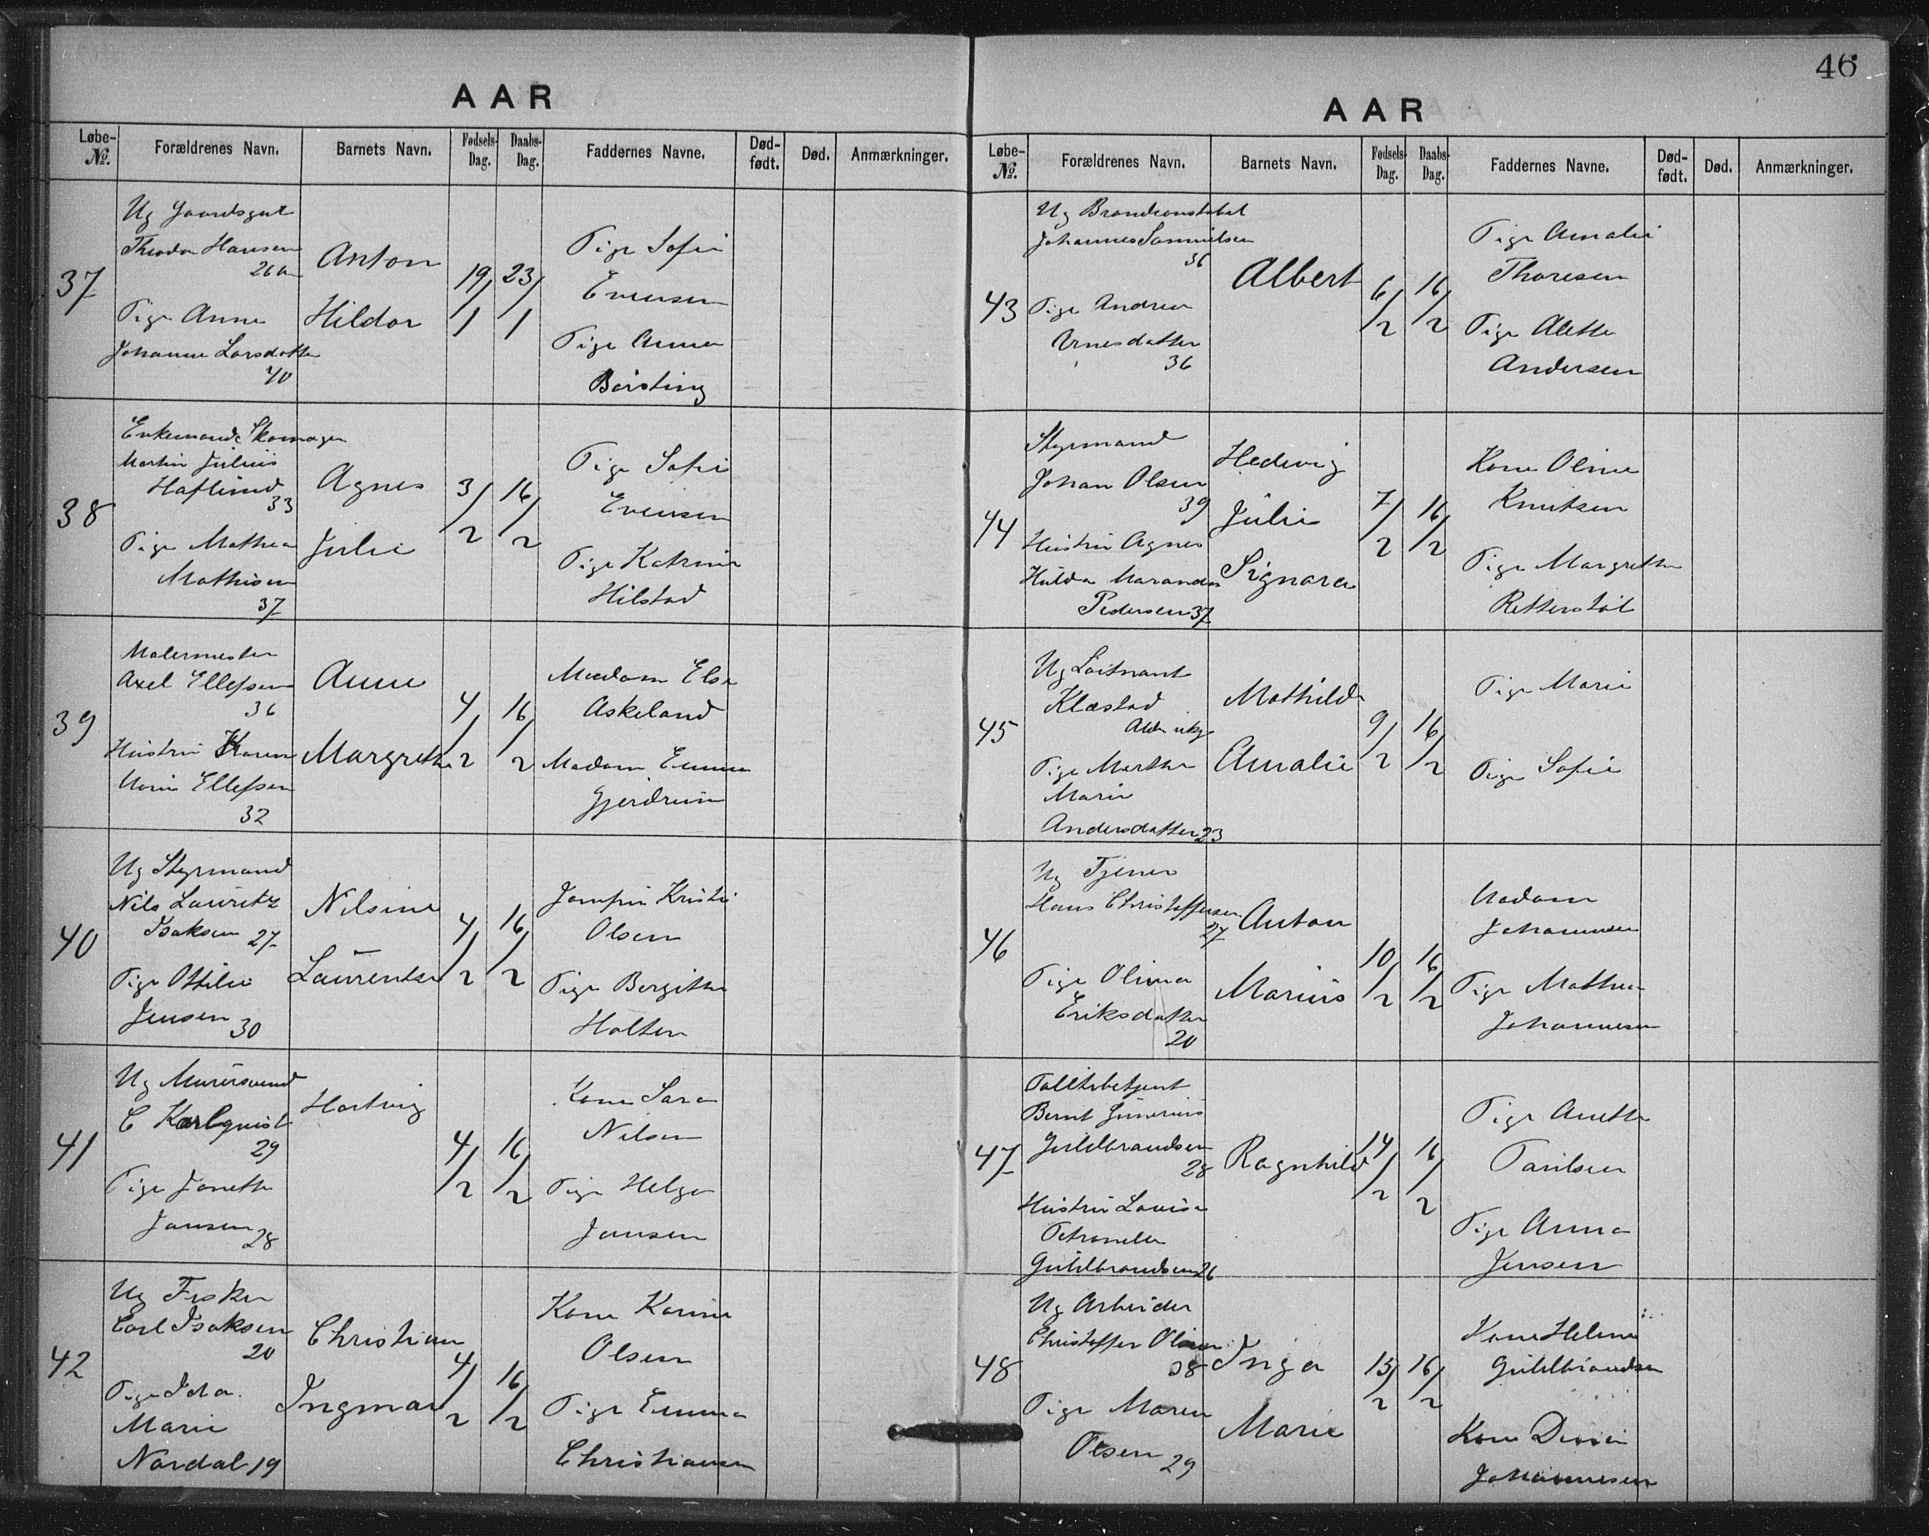 46
AAR
Løbe-№. Forældrenes Navn. Barnets Navn. Fødsels-Dag. Daabs-Dag. Faddernes Navne. Død-født. Død. Anmærkninger.
37
Ug Gaardsgut
Theodor Hansen
26
Pige Anne
Johanne Larsdatter
40
Anton
Hildor
19/1
23/1
Pige Sofie
Evensen
Pige Anna
Børsting
38
Enkemand Skomager
Martin Julius
Haflund
33
Pige Mathea
Mathisen
37
Agnes
Julie
3/2
16/2
Pige Sofie
Evensen
Pige Katrine
Hilstad
39
Malermester
Axel Ellefsen
36
Hustru Karen
Marie Ellefsen
32
Anne
Margrethe
4/2
16/2
Madam Else
Askeland
Madam Emma
Gjerdrum
40
Ug Styrmand
Nils Lauritz
Isaksen 27
Pige Ottilie
Jensen 30
Nilsine
Laurentse
4/2
16/2
Jomfru Kristi
Olsen
Pige Bergitte
Holten
41
Ug Murersvend
C Karlquist
29
Pige Janette
Jansen 28
Hartvig
4/2
16/2
Kone Sara
Nilsen
Pige Helga
Jansen
42
Ug Fisker
Carl Isaksen
20
Pige Ida
Marie
Nordal 19
Christian
Ingmar
4/2
16/2
Kone Karine
Olsen
Pige Emma
Christiansen
AAR
Løbe-№. Forældrenes Navn. Barnets Navn. Fødsels-Dag. Daabs-Dag. Faddernes Navne. Død-født. Død. Anmærkninger.
43
Ug Brandconstabel
Johannes Samuelsen
36
Pige Andrea
Arnesdatter
36
Albert
6/2
16/2
Pige Amalie
Thoresen
Pige Alette
Andersen
44
Styrmand
Johan Olsen
39
Hustru Agnes
Hulda
Pedersen 37
Hedvig
Julie
Signora
7/2
16/2
Kone Oline
Knutsen
Pige Margrethe
Retterstøl
45
Ug Løitnant
Klæstad
Alder
Pige Marthe
Marie
Andersdatter 23
Mathilde
Amalie
9/2
16/2
Pige Marie
Pige Sofie
46
Ug Tjener
Hans Christoffersen
27
Pige Olina
Eriksdatter
20
Anton
Marius
10/2
16/2
Madam
Johannesen
Pige Mathea
Johannesen
47
Toldbetjent
Bernt Gunerius
Guldbrandsen
28
Hustru Lovise
Petronelle
Guldbrandsen 26
Ragnhild
14/2
16/2
Pige Anette
Paulsen
Pige Anna
Jensen
48
Ug Arbeider
Christoffer Olsen
38
Pige Maren
Olsen 29
Inga
Marie
15/2
16/2
Kone Helene
Guldbrandsen
Kone
Johannesen